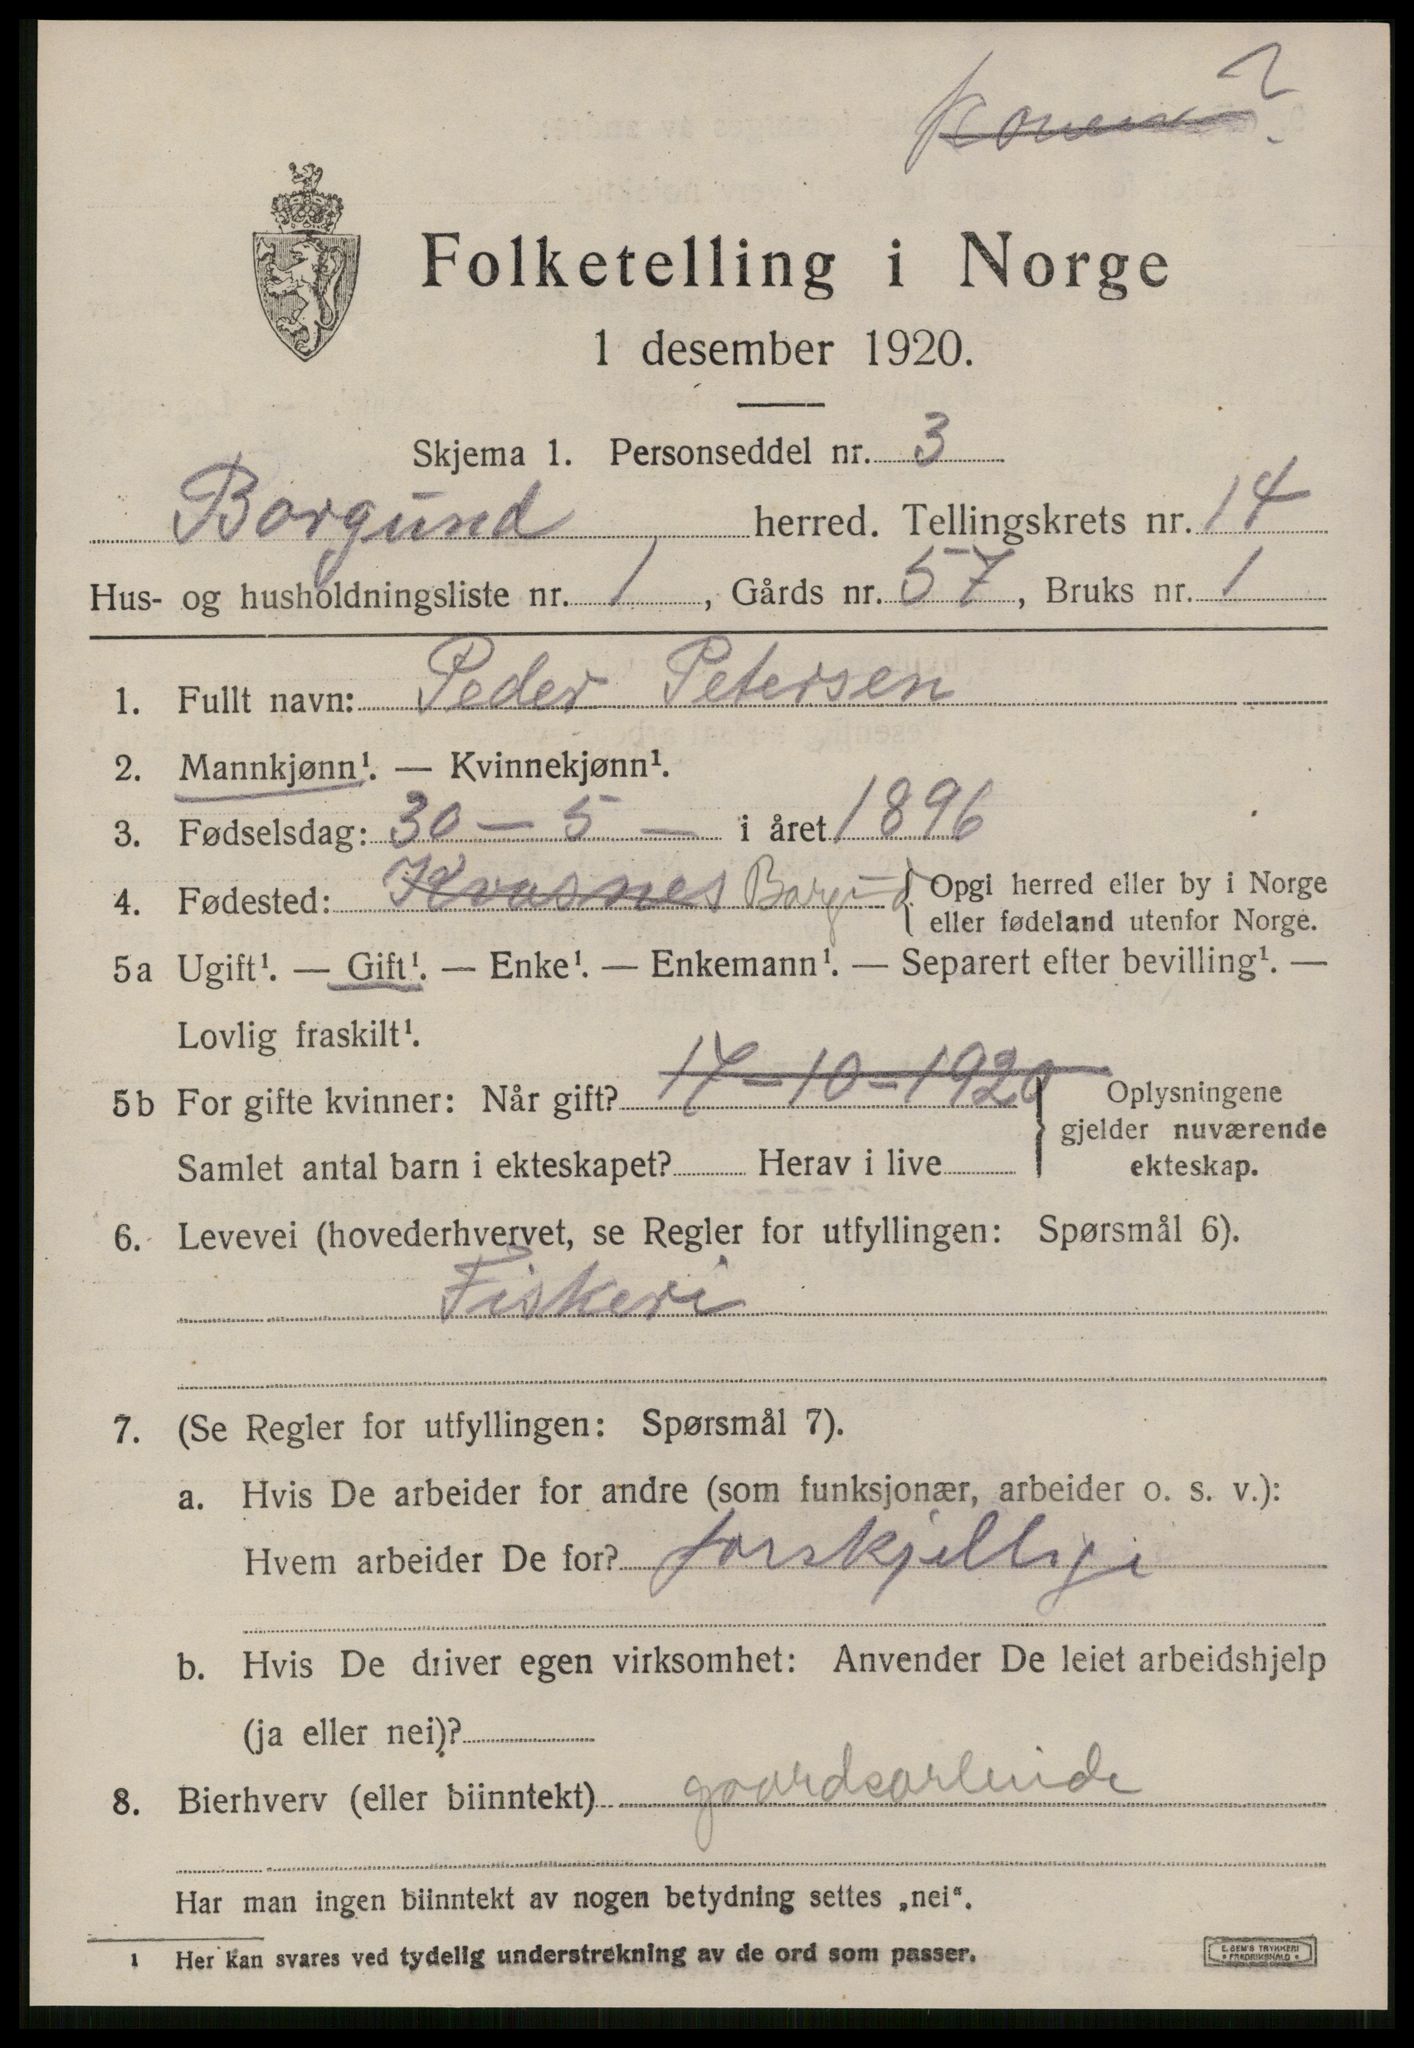 Folketelling i Norge
1 desember 1920.
Skjema 1. Personseddel nr. 3
Borgund herred. Tellingskrets nr. 14
Hus- og husholdningsliste nr. 1, Gårds nr. 57, Bruks nr. 1
1. Fullt navn: Peder Petersen
2. Mannkjønn¹. — Kvinnekjønn¹.
3. Fødselsdag: 30 - 5 - i året 1896
4. Fødested: Kvasnes Borgund Opgi herred eller by i Norge
eller fødeland utenfor Norge.
5a Ugift¹. — Gift¹. — Enke¹. — Enkemann¹. — Separert efter bevilling¹. —
Lovlig fraskilt¹.
5b For gifte kvinner: Når gift? 17-10-1920 Oplysningene
gjelder nuværende
Samlet antal barn i ekteskapet? Herav i live ekteskap.
6. Levevei (hovederhvervet, se Regler for utfyllingen: Spørsmål 6).
Fiskeri
7. (Se Regler for utfyllingen: Spørsmål 7).
a. Hvis De arbeider for andre (som funksjonær, arbeider o. s. v.):
Hvem arbeider De for? forskjellige
b. Hvis De driver egen virksomhet: Anvender De leiet arbeidshjelp
(ja eller nei)?
8. Bierhverv (eller biinntekt) gaardsarbeide
Har man ingen biinntekt av nogen betydning settes „nei“.
1 Her kan svares ved tydelig understrekning av de ord som passer.
E. SEM'S TRYKKERI
FREDRIKSHALD